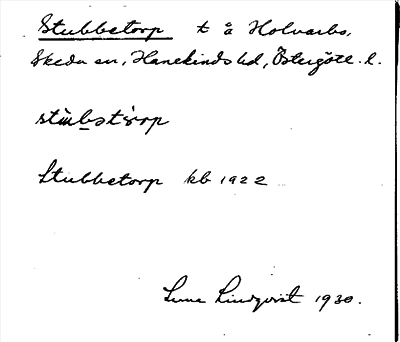 Stubbetorp t å Holvarbo,
Skeda sn, Hanekinds hd, Östergötl. l.
stubstorp
Stubbetorp kb 1922
Sune Lindqvist 1930.